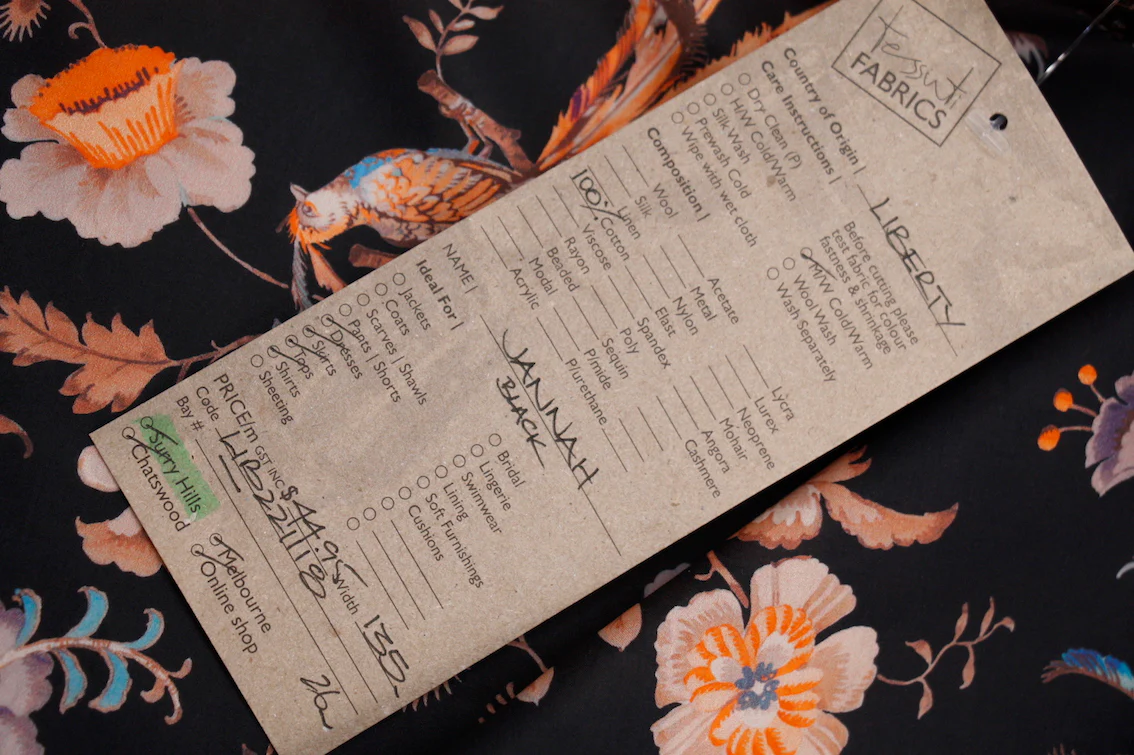 Tessuti
FABRICS
Country of Origin | LIBERTY
Care Instructions |
Dry Clean (P)
H/W Cold/Warm
Silk Wash
Prewash Cold
Wipe with wet cloth
Before cutting please
test fabric for colour
fastness & shrinkage
M/W Cold/Warm
Wool Wash
Wash Separately
Composition |
Wool
Silk
Linen
100% Cotton
Viscose
Rayon
Beaded
Modal
Acrylic
Acetate
Metal
Nylon
Elast
Spandex
Poly
Sequin
P/mide
P/urethane
Lycra
Lurex
Neoprene
Mohair
Angora
Cashmere
NAME | JANNAH
BLACK
Ideal For |
Jackets
Coats
Scarves | Shawls
Pants | Shorts
Dresses
Skirts
Tops
Shirts
Sheeting
Bridal
Lingerie
Swimwear
Lining
Soft Furnishings
Cushions
PRICE/m GST INC $44.95 Width 135
Code LIB221118
Bay #
Surry Hills
Chatswood
Melbourne
Online shop